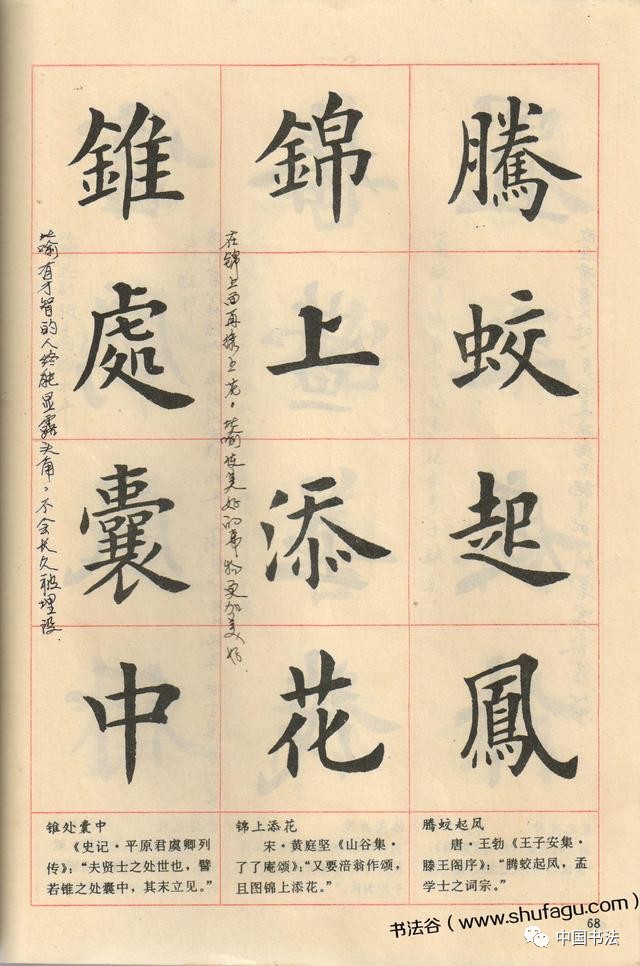 騰蛟起鳳
錦上添花
在锦上面再绣上花，比喻使美好的事物更加美好.
錐處囊中
比喻有才智的人终能显露头角，不会长久被埋没.
锥处囊中
《史记·平原君虞卿列
传》：“夫贤士之处世也，譬
若锥之处囊中，其末立见。”
锦上添花
宋·黄庭坚《山谷集·
了了庵颂》：“又要涪翁作颂，
且图锦上添花。”
腾蛟起凤
唐·王勃《王子安集·
滕王阁序》：“腾蛟起凤，孟
学士之词宗。”
书法谷（www.shufagu.com）
68
中国书法